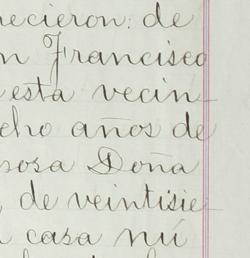 ecieron: de
n Francisco
esta vecin
cho años de
sosa Doña
de veintisie
a casa nú